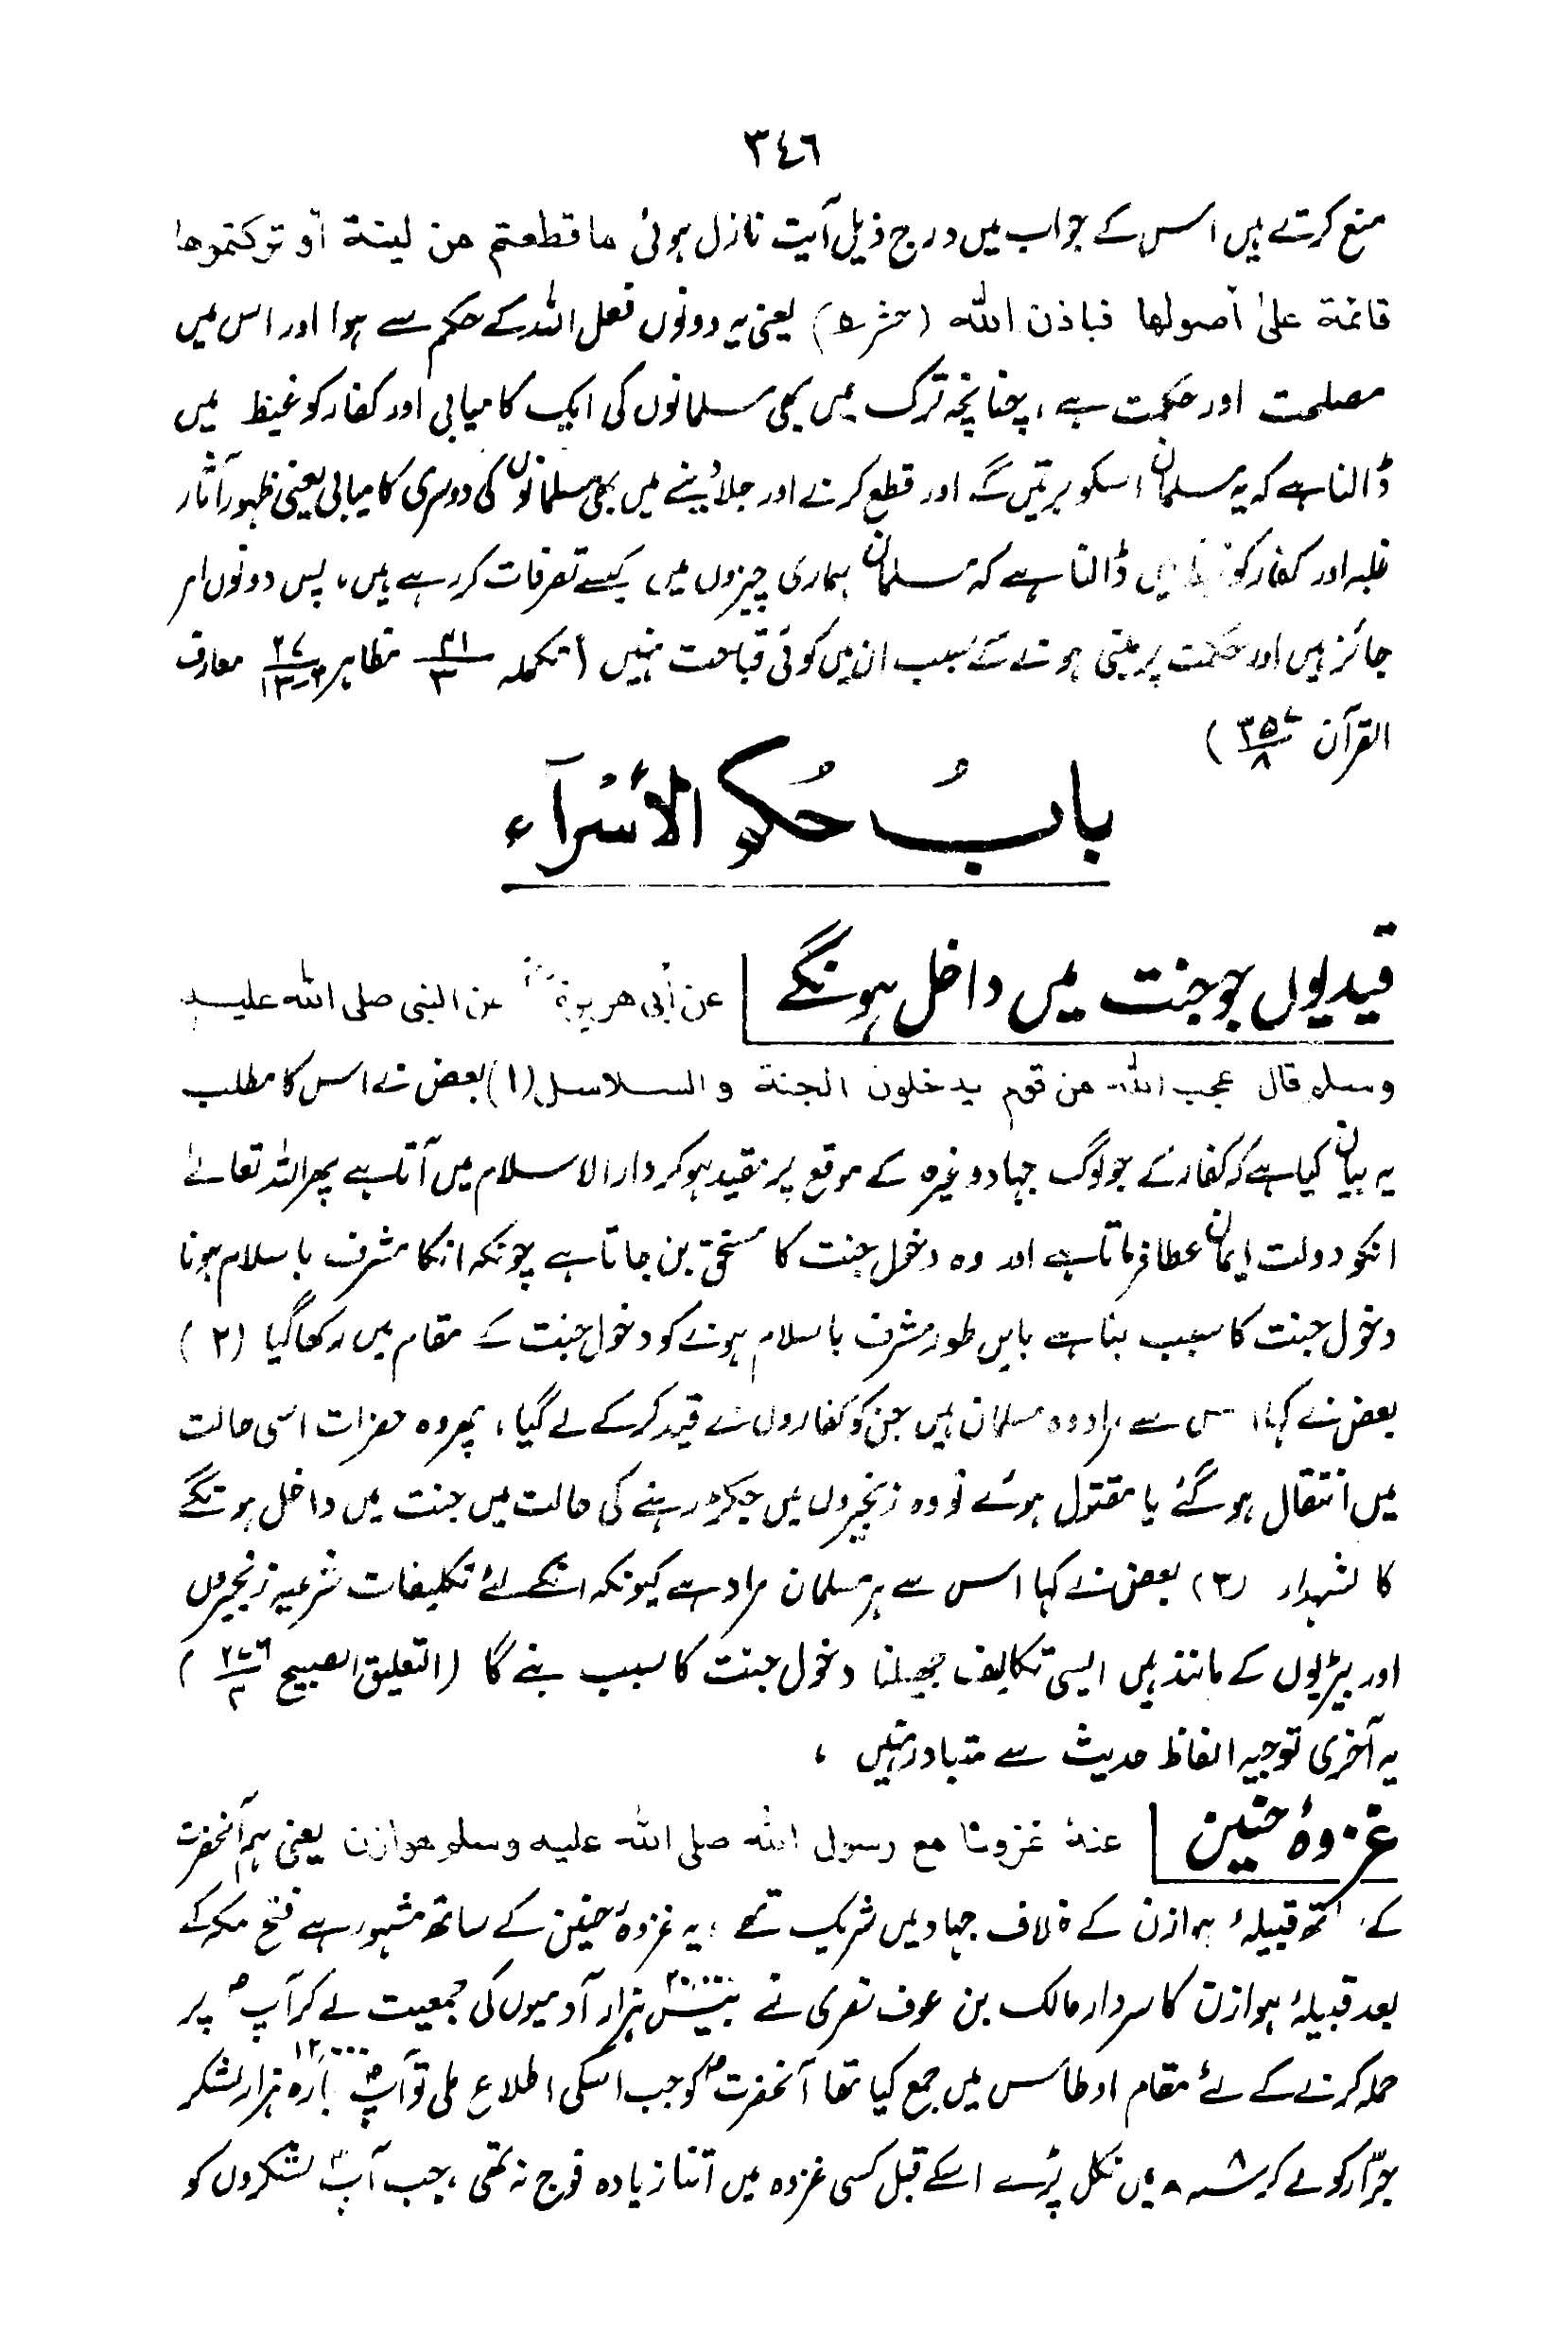 ٣٤٦
منع کرتے ہیں اس کے جواب میں درج ذیل آیت نازل ہوئی ما قطعتم من لینة أو ترکتموها
قائمة علیٰ أصولها فباذن الله (حشر ۵) یعنی یہ دونوں فعل اللہ کے حکم سے ہوا اور اس میں
مصلحت اور حکمت ہے، چنانچہ ترک میں بھی مسلمانوں کی ایک کامیابی اور کفار کو غیظ میں
ڈالنا ہے کہ یہ مسلمان اسکو برتیں گے اور قطع کرنے اور جلا دینے میں بھی مسلمانوں کی دوسری کامیابی یعنی ظہور آثار
غلبہ اور کفار کو میں ڈالنا ہے کہ مسلمان ہماری چیزوں میں کیسے تصرفات کر رہے ہیں، پس دونوں امر
جائز ہیں اور حکمت پر مبنی ہونے کے سبب ان میں کوئی قباحت نہیں (تکملہ ۳۱/۳ مظاہر معارف
القرآن ۳۵۷/۸)
بابُ حُکم الأُسَرآء
قیدیوں جو جنت میں داخل ہونگے | عن أبی هریرة عن النبی صلی الله علیه
وسلم قال عجب الله من قوم یدخلون الجنة و السلاسل (۱) بعض نے اس کا مطلب
یہ بیان کیا ہے کہ کفار کے جو لوگ جہاد وغیرہ کے موقع پر مقید ہو کر دار الاسلام میں آتا ہے پھر اللہ تعالےٰ
انکو دولت ایمان عطا فرماتا ہے اور وہ دخول جنت کا مستحق بن جاتا ہے چونکہ انکا مشرف باسلام ہونا
دخول جنت کا سبب بنا ہے بایں طور مشرف باسلام ہونے کو دخول جنت کے مقام میں رکھا گیا (۲)
بعض نے کہا اس سے مراد وہ مسلمان ہیں جن کو کفاروں نے قید کر کے لے گیا، پھر وہ حضرات اسی حالت
میں انتقال ہو گئے یا مقتول ہوئے تو وہ زنجیروں میں جکڑ رہنے کی حالت میں جنت میں داخل ہونگے
کالشہداء (۳) بعض نے کہا اس سے ہر مسلمان مراد ہے کیونکہ انکے لئے تکلیفات شرعیہ زنجیروں
اور بیڑیوں کے مانند ہیں ایسی تکالیف جھیلنا دخول جنت کا سبب بنے گا (التعلیق الصبیح ۲۷۶/۴)
یہ آخری توجیہ الفاظ حدیث سے متبادر نہیں ،
غزوۂ حنین | عنهٗ غزونا مع رسول الله صلی الله علیه وسلم هوازن یعنی ہم آنحضرت
کے ساتھ قبیلۂ ہوازن کے خلاف جہاد میں شریک تھے ، یہ غزوۂ حنین کے ساتھ مشہور ہے فتح مکہ کے
بعد قبیلۂ ہوازن کا سردار مالک بن عوف نصری نے بیس ۲۰،۰۰۰ ہزار آدمیوں کی جمعیت لے کر آپؐ پر
حملہ کرنے کے لئے مقام اوطاس میں جمع کیا تھا آنحضرتؐ کو جب اسکی اطلاع ملی تو آپؐ بارہ ۱۲،۰۰۰ ہزار لشکر
جرّار کو لے کر ۸ سنہ ھ میں نکل پڑے اسکے قبل کسی غزوہ میں اتنا زیادہ فوج نہ تھی ، جب آپؐ لشکروں کو